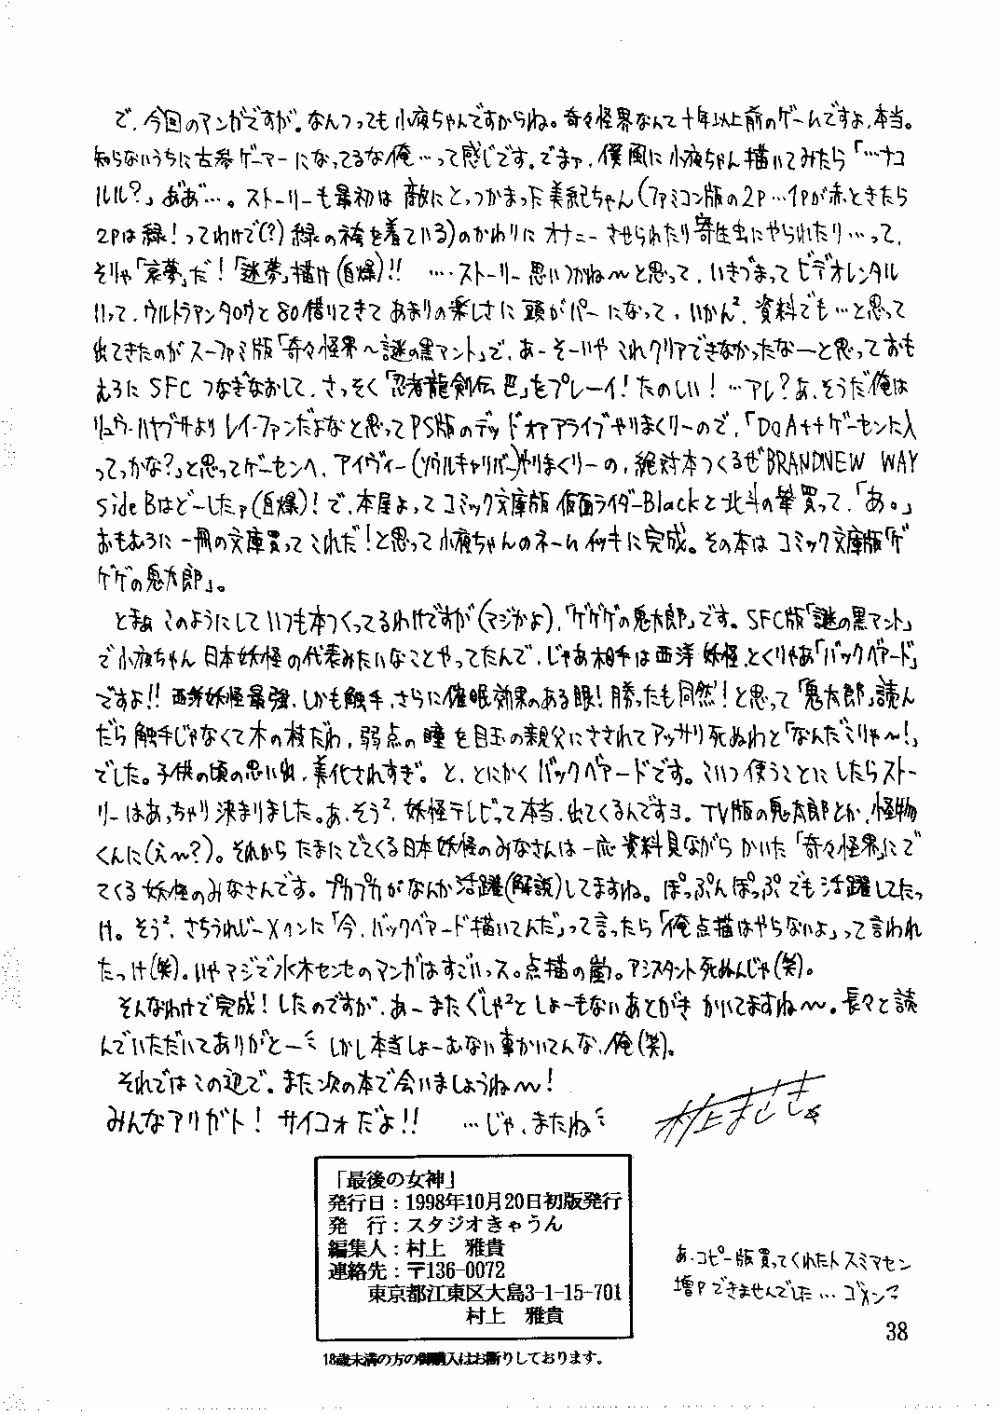 で、今回のマンガですが。なんつっても小夜ちゃんですからね。奇々怪界なんて十年以上前のゲームですよ、本当。
知らないうちに古参ゲーマーになってるな俺…って感じです。でまァ、僕風に小夜ちゃん描いてみたら「…ナコ
ルル?」ああ…。ストーリーも最初は敵にとっつかまった美紀ちゃん(ファミコン版の2P…1Pが赤ときたら
2Pは緑!ってわけで(?)緑の袴を着ている)のかわりにオナニーさせられたり寄生虫にやられたり…って、
そりゃ「哀夢」だ!「迷夢」描け(自爆)!! ….ストーリー思いつかね〜と思って、いきづまってビデオレンタル
いって、ウルトラマンタロウと80借りてきてあまりの楽しさに頭がパーになって、いかん²、資料でも…と思って
出てきたのがスーファミ版「奇々怪界〜謎の黒マント」で、あーそーいやこれクリアできなかったなーと思っておも
むろにSFCつなぎなおして、さっそく「忍者龍剣伝巴」をプレーイ!たのしい!…アレ?あ、そうだ俺は
リュウ・ハヤブサよりレイファンだよなと思ってPS版のデッドオアアライブやりまくりーので、「DOA++ゲーセンに入
ってっかな?」と思ってゲーセンへ、アイヴィー(ソウルキャリバー)やりまくりーの、絶対本つくるぜBRANDNEW WAY
sideBはどーしたァ(自爆)!で、本屋よってコミック文庫版仮面ライダーBlackと北斗の拳買って、「あ。」
おもむろに一冊の文庫買ってこれだ!と思って小夜ちゃんのネームイッキに完成。その本はコミック文庫版「ゲ
ゲゲの鬼太郎」。
とまぁこのようにしていつも本つくってるわけですが(マジかよ)、「ゲゲゲの鬼太郎」です。SFC版「謎の黒マント」
で小夜ちゃん日本妖怪の代表みたいなことやってたんで、じゃあ相手は西洋妖怪、とくりゃあ「バックベアード」
ですよ!!西洋妖怪最強、しかも触手、さらに催眠効果のある眼!勝ったも同然!と思って「鬼太郎」読ん
だら触手じゃなくて木の枝だわ、弱点の瞳を目玉の親父にさされてアッサリ死ぬわと「なんだこりゃ〜!」
でした。子供の頃の思い出、美化されすぎ。と、とにかくバックベアードです。こいつ使うことにしたらストー
リーはあっちゃり決まりました。あ、そう²、妖怪テレビって本当、出てくるんですヨ。TV版の鬼太郎とか、怪物
くんに(え〜?)。それからたまにでてくる日本妖怪のみなさんは一応資料見ながらかいた「奇々怪界」にで
てくる妖怪のみなさんです。プカプカがなんか活躍(解説)してますね。ぽっぷんぽっぷでも活躍してたっ
け。そう²、さちうれじーXクンに「今、バックベアード描いてんだ」って言ったら「俺点描はやらないよ」って言われ
たっけ(笑)。いやマジで水木センセのマンガはすごいっス。点描の嵐。アシスタント死ぬんじゃ(笑)。
そんなわけで完成!したのですが、あーまたぐじゃ²としょーもないあとがきかいてますね〜。長々と読
んでいただいてありがとーしかし本当しょーむない事かいてんな、俺(笑)。
それではこの辺で。また次の本で会いましょうね〜!
みんなアリガト!サイコォだよ!! …じゃ、またね
村上まさき
「最後の女神」
発行日:1998年10月20日初版発行
発 行:スタジオきゃうん
編集人:村上 雅貴
連絡先:〒136-0072
東京都江東区大島3-1-15-701
村上 雅貴
18歳未満の方の御購入はお断りしております。
あ、コピー版買ってくれた人スミマセン
増Pできませんでした…ゴメン
38